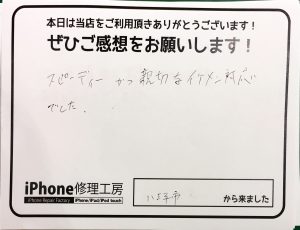 本日は当店をご利用頂きありがとうございます！
ぜひご感想をお願いします！
スピーディーかつ親切なイケメン対応
でした。
iPhone修理工房
iPhone Repair Factory iPhone/iPad/iPod touch
八王子市 から来ました